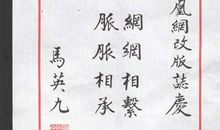 凰網改版誌慶
網網相繫
脈脈相承
馬英九